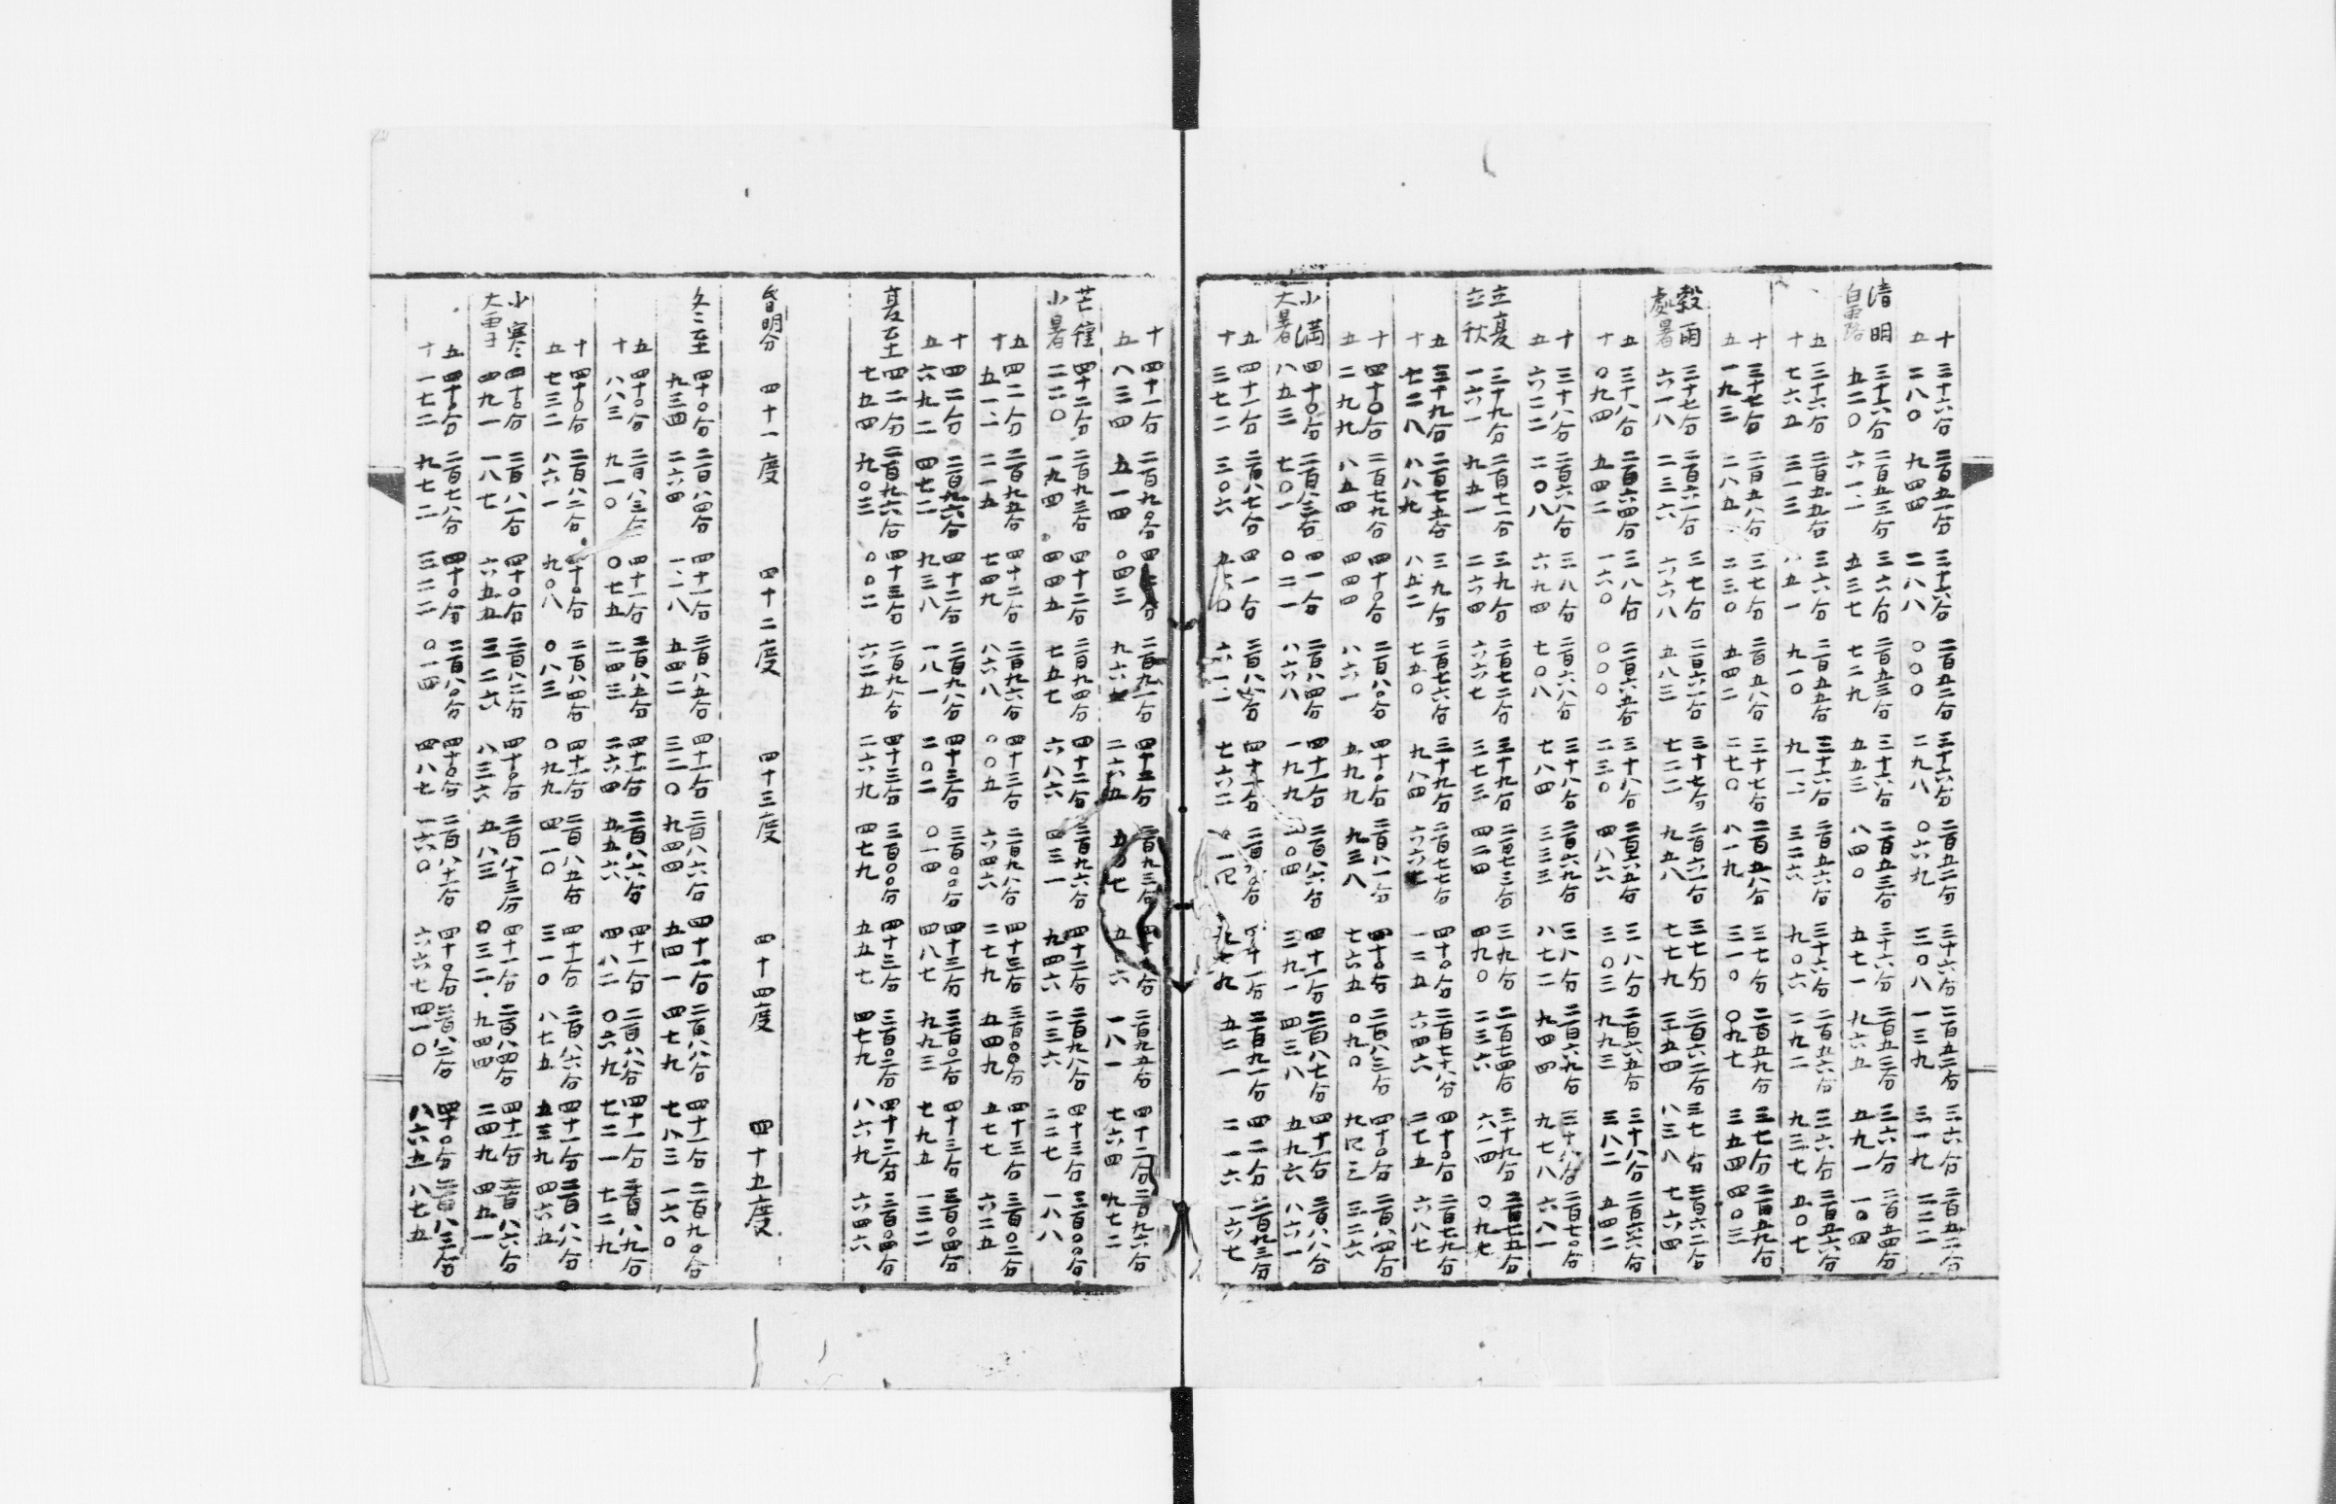 十 三十六分 二百五一分 三十六分 二百五二分 三十六分 二百五二分 三十六分 二百五二分 三六分 二百五二分
五 二八〇 九四四 二八八 〇〇〇 二九八 〇六九 三〇八 一三九 三一九 二二二
清明 三十六分 二百五三分 三六分 二百五三分 三十六分 二百五三分 三十六分 二百五三分 三六分 二百五四分
白露 五二〇 六一一 五三七 七二九 五五三 八四〇 五七一 九六五 五九一 一〇四
五 三十六分 二百五五分 三六分 二百五五分 三十六分 二百五六分 三十六分 二百五六分 三六分 二百五六分
十 七六五 三一三 八五一 九一〇 九一一 三二六 九〇六 二九二 九三七 五〇七
十 三十七分 二百五八分 三七分 二百五八分 三十七分 二百五八分 三七分 二百五九分 三七分 二百五九分
五 一九三 二八五 二三〇 五四二 二七〇 八一九 三一〇 〇九七 三五四 四〇三
穀雨 三十七分 二百六一分 三七分 二百六一分 三十七分 二百六一分 三七分 二百六二分 三七分 二百六二分
處暑 六一八 二三六 六六八 五八三 七二二 九五八 七七九 三五四 八三八 七六四
五 三十八分 二百六四分 三八分 二百六五分 三十八分 二百六五分 三八分 二百六五分 三十八分 二百六六分
十 〇九四 五四二 一六〇 〇〇〇 二三〇 四八六 三〇三 九九三 三八二 五四二
十 三十八分 二百六八分 三八分 二百六八分 三十八分 二百六九分 三八分 二百六九分 三十八分 二百七〇分
五 六二二 二〇八 六九四 七〇八 七八四 三三三 八七二 九四四 九七八 六八一
立夏 三十九分 二百七一分 三九分 二百七二分 三十九分 二百七三分 三九分 二百七四分 三十九分 二百七五分
立秋 一六一 九五一 二六四 六六七 三七三 四二四 四九〇 二三六 六一四 〇九七
五 三十九分 二百七五分 三九分 二百七六分 三十九分 二百七七分 四十〇分 二百七十八分 四十〇分 二百七九分
十 七二八 八八九 八五二 七五〇 九八四 六六七 一二五 六四六 二七五 六八七
十 四十〇分 二百七九分 四十〇分 二百八〇分 四十〇分 二百八一分 四十〇分 二百八三分 四十〇分 二百八四分
五 二九九 八五四 四四四 八六一 五九九 九三八 七六五 〇九〇 三二六
小滿 四十〇分 二百八三分 四一分 二百八四分 四十一分 二百八六分 四十一分 二百八七分 四十一分 二百八八分
大暑 八五三 七〇一 〇二一 八六八 一九九 三九一 四三八 五九六 八六一
五 四十一分 二百八七分 四一分 二百八八分 四十一分 四十一分 二百九一分 四二分 二百九三分
十 三七二 三〇六 六一一 七六二 五二一 二一六 一六七
十 四十一分 二百九〇分 二百九一分 四十二分 二百九三分 二百九五分 四十二分 二百九六分
五 八三四 五一四 〇四三 一八一 七六四 九七二
芒種 四十二分 二百九三分 四十二分 二百九四分 四十二分 二百九六分 四十二分 二百九八分 四十三分 三百〇〇分
小暑 二二〇 一九四 四四五 七五七 六八六 四三一 九四六 二三六 二二七 一八八
五 四二分 二百九五分 四十二分 二百九六分 四十三分 二百九八分 四十三分 三百〇〇分 四十三分 三百〇二分
十 五一一 二一五 七四九 八六八 〇〇五 六四六 二七九 五四九 五七七 六二五
十 四二分 二百九六分 四十二分 二百九八分 四十三分 三百〇〇分 四十三分 三百〇二分 四十三分 三百〇四分
五 六九二 四七二 九三八 一八一 二〇二 〇一四 四八七 九九三 七九五 一三二
夏至 四二分 二百九六分 四十三分 二百九八分 四十三分 三百〇〇分 四十三分 三百〇二分 四十三分 三百〇四分
七五四 九〇三 〇〇二 六二五 二六九 四七九 五五七 四七九 八六九 六四六
昏明分 四十一度 四十二度 四十三度 四十四度 四十五度
冬至 四十〇分 二百八四分 四十一分 二百八五分 四十一分 二百八六分 四十一分 二百八八分 四十一分 二百九〇分
九三四 二六四 一一八 五四二 三二〇 九四四 五四一 四七九 七八三 一六〇
五 四十〇分 二百八三分 四十一分 二百八五分 四十一分 二百八六分 四十一分 二百八八分 四十一分 二百八九分
十 八八三 九一〇 〇七五 二四三 二六四 五五六 四八二 〇六九 七二一 七二九
十 四十〇分 二百八二分 四十〇分 二百八四分 四十一分 二百八五分 四十一分 二百八六分 四十一分 二百八八分
五 七三二 八六一 九〇八 〇八三 〇九九 四一〇 三一〇 八七五 五三九 四六五
小寒 四十〇分 二百八一分 四十〇分 二百八二分 四十〇分 二百八十三分 四十一分 二百八四分 四十一分 二百八六分
大雪 四九一 一八七 六五五 三二六 八三六 五八三 〇三二 九四四 二四九 四五一
五 四十〇分 二百七八分 四十〇分 二百八〇分 四十〇分 二百八十一分 四十〇分 二百八二分 四十〇分 二百八三分
十 一七二 九七二 三二二 〇一四 四八七 一六〇 六六七 四一〇 八六五 八七五